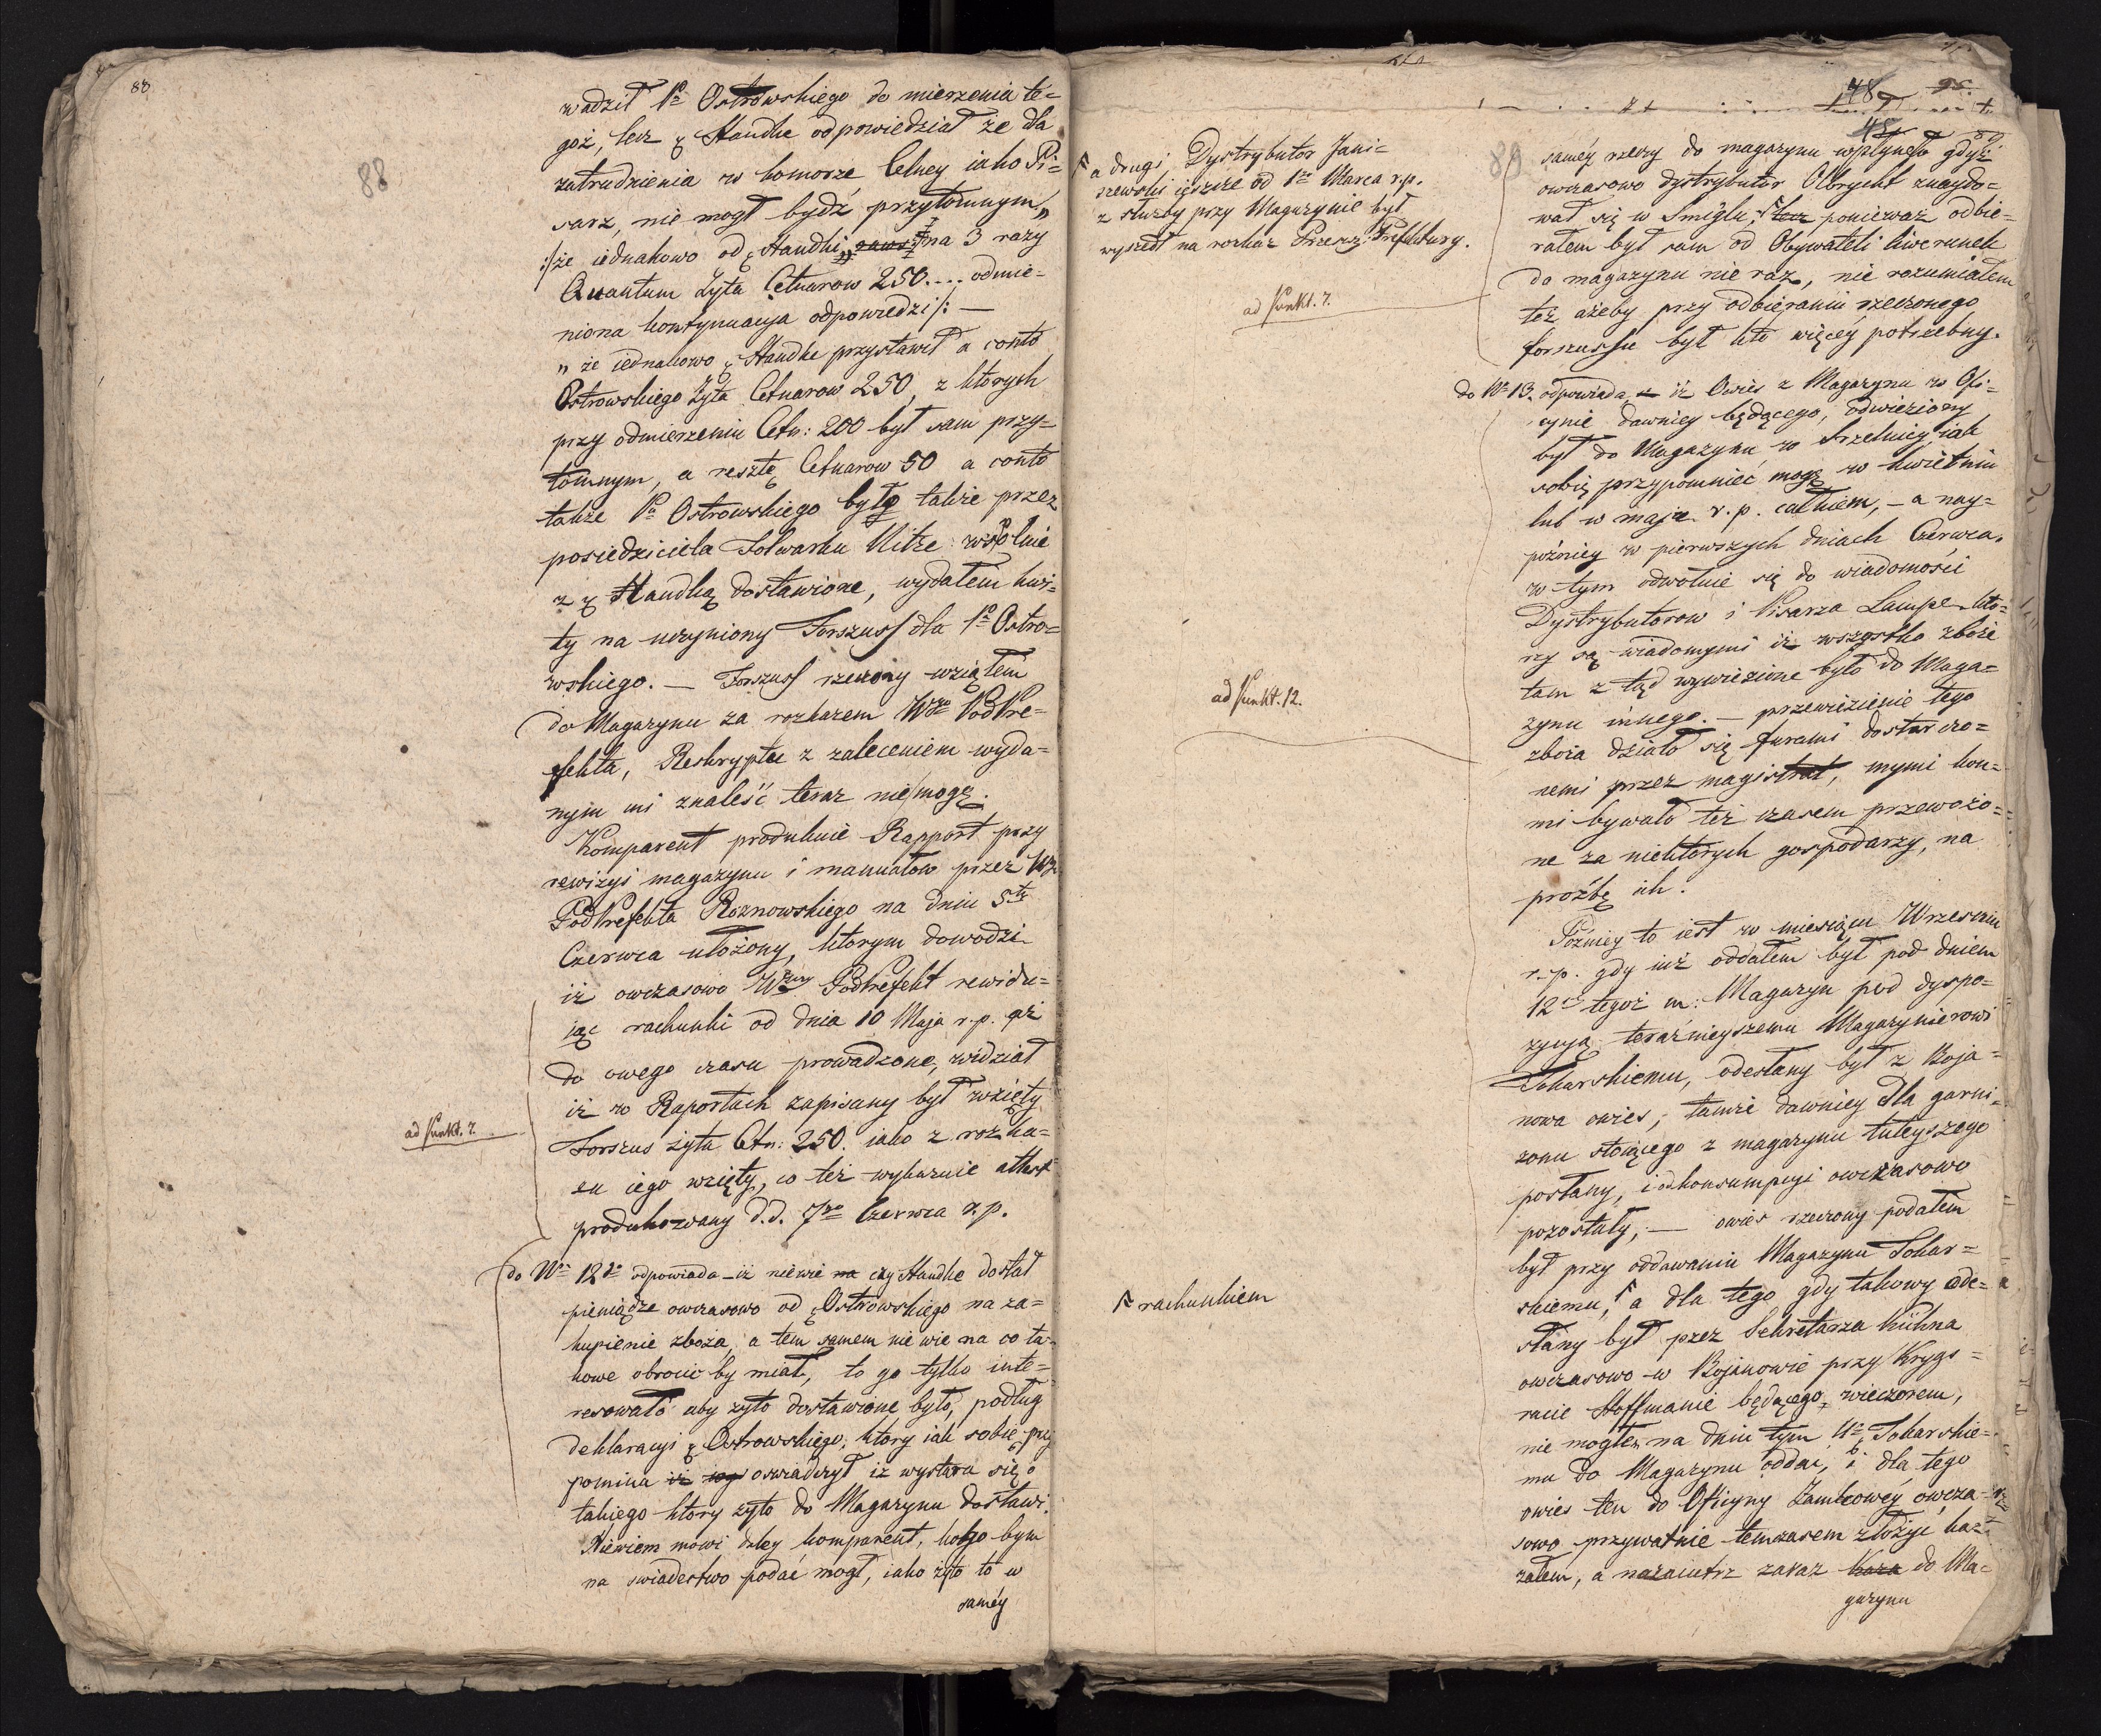 88
88
wadził Pa Ostrowskiego do mierzenia te=
goż, lecz Handke odpowiedział że dla
zatrudnienia w komorze Celney iako Pi=
sarz, nie mogł bydź przytomnym„
:/że iednakowo od Handki na 3 razy
Quantum Żyta Cetnarow 250.... odmie=
niona kontynuacya odpowiedzi/: —
„ że iednakowo Handke przystawił a conto
Ostrowskiego Żyta Cetnarow 250, z ktorych
przy odmierzeniu Cetn: 200 był sam przy=
tomnym, a resztę Cetnarow 50 a conto
także Pa Ostrowskiego było także przez
posiedziciela Folwarku Nitze wspolnie
z Handką dostawione, wydałem kwi=
ty na uczyniony Forszuss dla Pa Ostro=
wskiego. — Forszuss rzeczony wziąłem
do Magazynu za rozkazem Wgo PodPre=
fekta, Reskryptu z zaleceniem wyda=
nym mi znaleść teraz nie mogę.
Komparent produkuie Rapport przy
rewizyi magazynu i manuałow przez Wgo
PodPrefekta Roznowskiego na dniu 5ty
Czerwca ułożony, ktorym dowodzi
iż owczasowo Wżny PodPrefekt rewidu=
iąc rachunki od dnia 10 Maja r.p. aż
do owego czasu prowadzone, widział
iż w Raportach zapisany był wzięty
ad Punkt. 7.
Forszus żyta Ctn: 250. iako z rozka=
zu iego wzięty, co też wykazuie attest
produkowany d.d. 7go Czerwca r.p.
do Nro 12go odpowiada – iż niewie czy Handke dostał
pieniądze owczasowo od Ostrowskiego na za=
kupienie zboża, a tem samem nie wie na co ta=
kowe obrocić by miał, to go tylko inte=
resowało aby żyto dostawione było, podług
deklaracyi Ostrowskiego, ktory iak sobie przy
pomina oswiadczył iż wystara się o
takiego ktory żyto do Magazynu dostawi.
Niewiem mowi daley komparent, kogo bym
na swiadectwo podać mogł, iako żyto to w
saméy
48
95
45
89
89
a drugi Dystrybutor Jani=
szewski ięszcze od 1go Marca r.p.
z służby przy Magazynie był
wyszedł na rozkaz Przesz: Prefektury.
ad Punkt. 7.
saméy rzeczy do magazynu wpłynęło gdyż
owczasowo dystrybutor Olbrycht znaydo=
wał się w Smiglu, lecz ponieważ odbie=
rałem był sam od Obywateli liwerunek
do magazynu nie raz, nie rozumiałem
też ażeby przy odbieraniu rzeczonego
forszussu był kto więcey potrzebny.
do Nro 13. odpowiada iż Owies z Magazynu w Ofi=
cynie dawniey będącego, odwieziony
był do Magazynu w Strzelnicy iak
sobie przypomnieć mogę w kwietniu
lub w maju r.p. całkiem, – a nay=
poźniey w pierwszych dniach Czerwca,
w tym odwołuie się do wiadomości
Dystrybutorow i Pisarza Lampe kto=
rzy są wiadomymi iż wszystko zboże
ad Punkt. 12.
tam z tąd wywiezione było do Maga=
zynu innego. – przewiezienie tego
zboża działo się furami dostarczo=
nemi przez magistrat, mymi koń=
mi bywało też czasem przewożo=
ne za niektorych gospodarzy, na
prośbę ich.
Poźniey to iest w miesiącu Wrzesniu
r.p. gdy iuż oddałem był pod dniem
12 tegoż m: Magazyn pod dyspo=
zycyą teraźnieyszemu Magazynierowi
Tokarskiemu, odesłany był z Boja=
nowa owies, tamże dawniey dla garni=
zonu stoiącego z magazynu tuteyszego
posłany, i od konsumpcyi owczasowo
pozostały, — owies rzeczony podałem
był przy oddawaniu Magazynu Tokar=
rachunkiem
skiemu, a dla tego gdy takowy ode=
słany był przez Sekretarza Kühna
owczasowo w Bojanowie przy Krygs=
racie Hoffmanie będącego, wieczorem,
nie mogłem na dniu tym Tokarskie=
mu do Magazynu oddać, i dla tego
owies ten do Oficyny Zamkowéy owcza=
sowo prywatnie tymczasem złożyć ka=
załem, a nazaiutrz zaraz do Ma=
gazynu